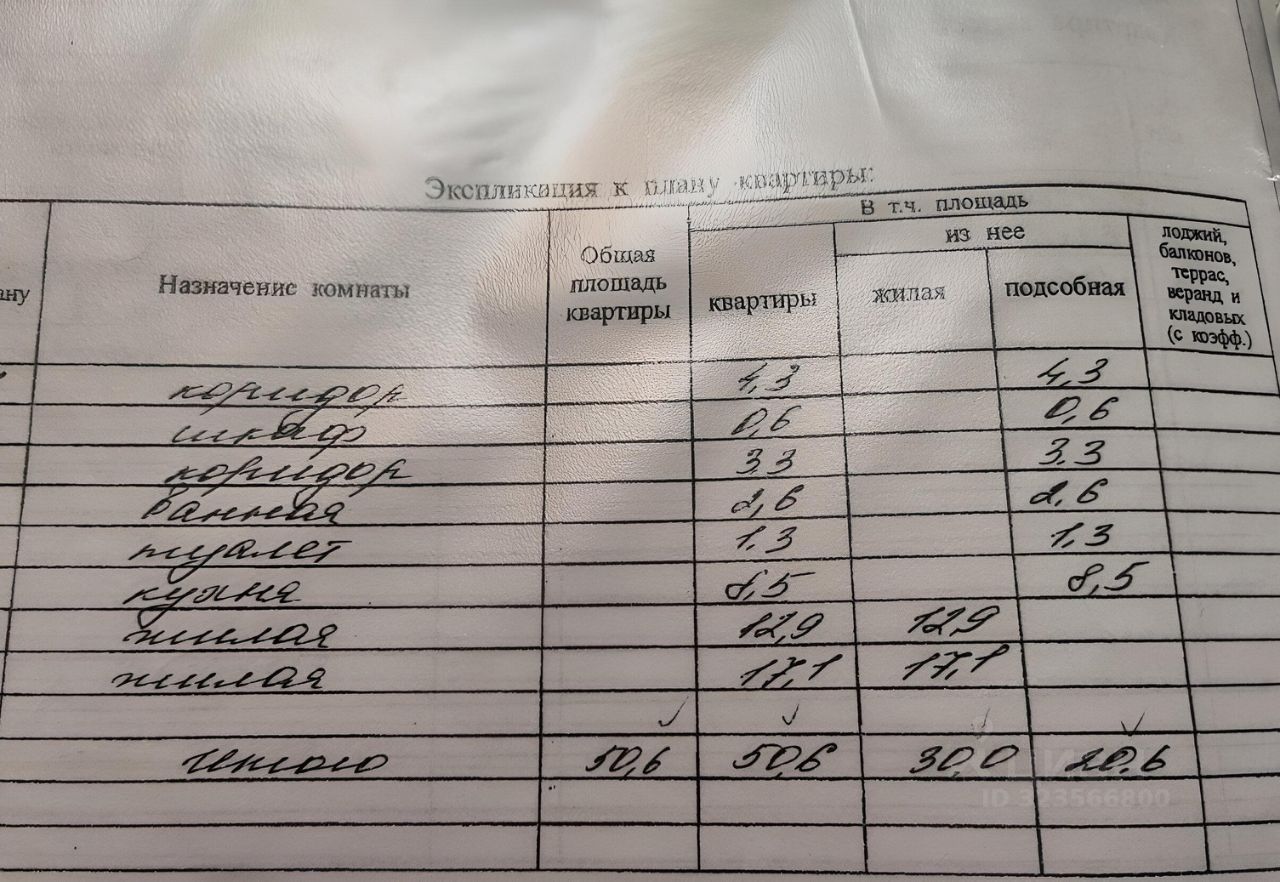 Экспликация к плану квартиры:
В т.ч. площадь
ану Назначение комнаты Общая площадь квартиры квартиры из нее жилая подсобная лоджий, балконов, террас, веранд и кладовых (с коэфф.)
коридор 4,3 4,3
шкаф 0,6 0,6
коридор 3.3 3.3
ванная 2,6 2,6
туалет 1.3 1.3
кухня 8,5 8,5
жилая 12,9 12,9
жилая 17,1 17,1
Итого 50,6 50,6 30,0 20,6
ЦИАН
ID 323566800